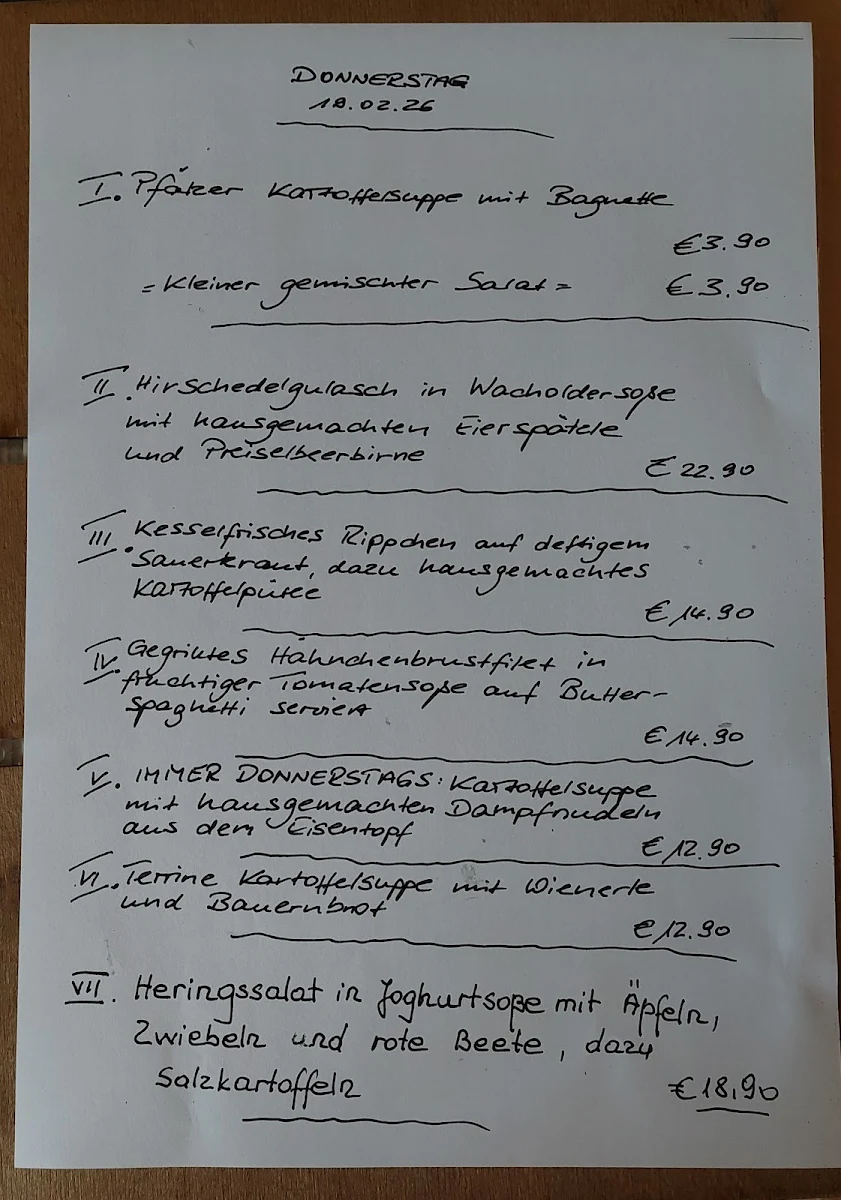 DONNERSTAG
19.02.26
I. Pfälzer Kartoffelsuppe mit Baguette
€ 3.90
= Kleiner gemischter Salat = € 3.90
II. Hirschedelgulasch in Wacholdersoße
mit hausgemachten Eierspätzle
und Preiselbeerbirne € 22.90
III. Kesselfrisches Rippchen auf deftigem
Sauerkraut, dazu hausgemachtes
Kartoffelpüree € 14.90
IV. Gegrilltes Hähnchenbrustfilet in
fruchtiger Tomatensoße auf Butter-
spaghetti serviert € 14.90
V. IMMER DONNERSTAGS: Kartoffelsuppe
mit hausgemachten Dampfnudeln
aus dem Eisentopf € 12.90
VI. Terrine Kartoffelsuppe mit Wienerle
und Bauernbrot € 12.90
VII. Heringssalat in Joghurtsoße mit Äpfeln,
Zwiebeln und rote Beete, dazu
Salzkartoffeln € 18,90